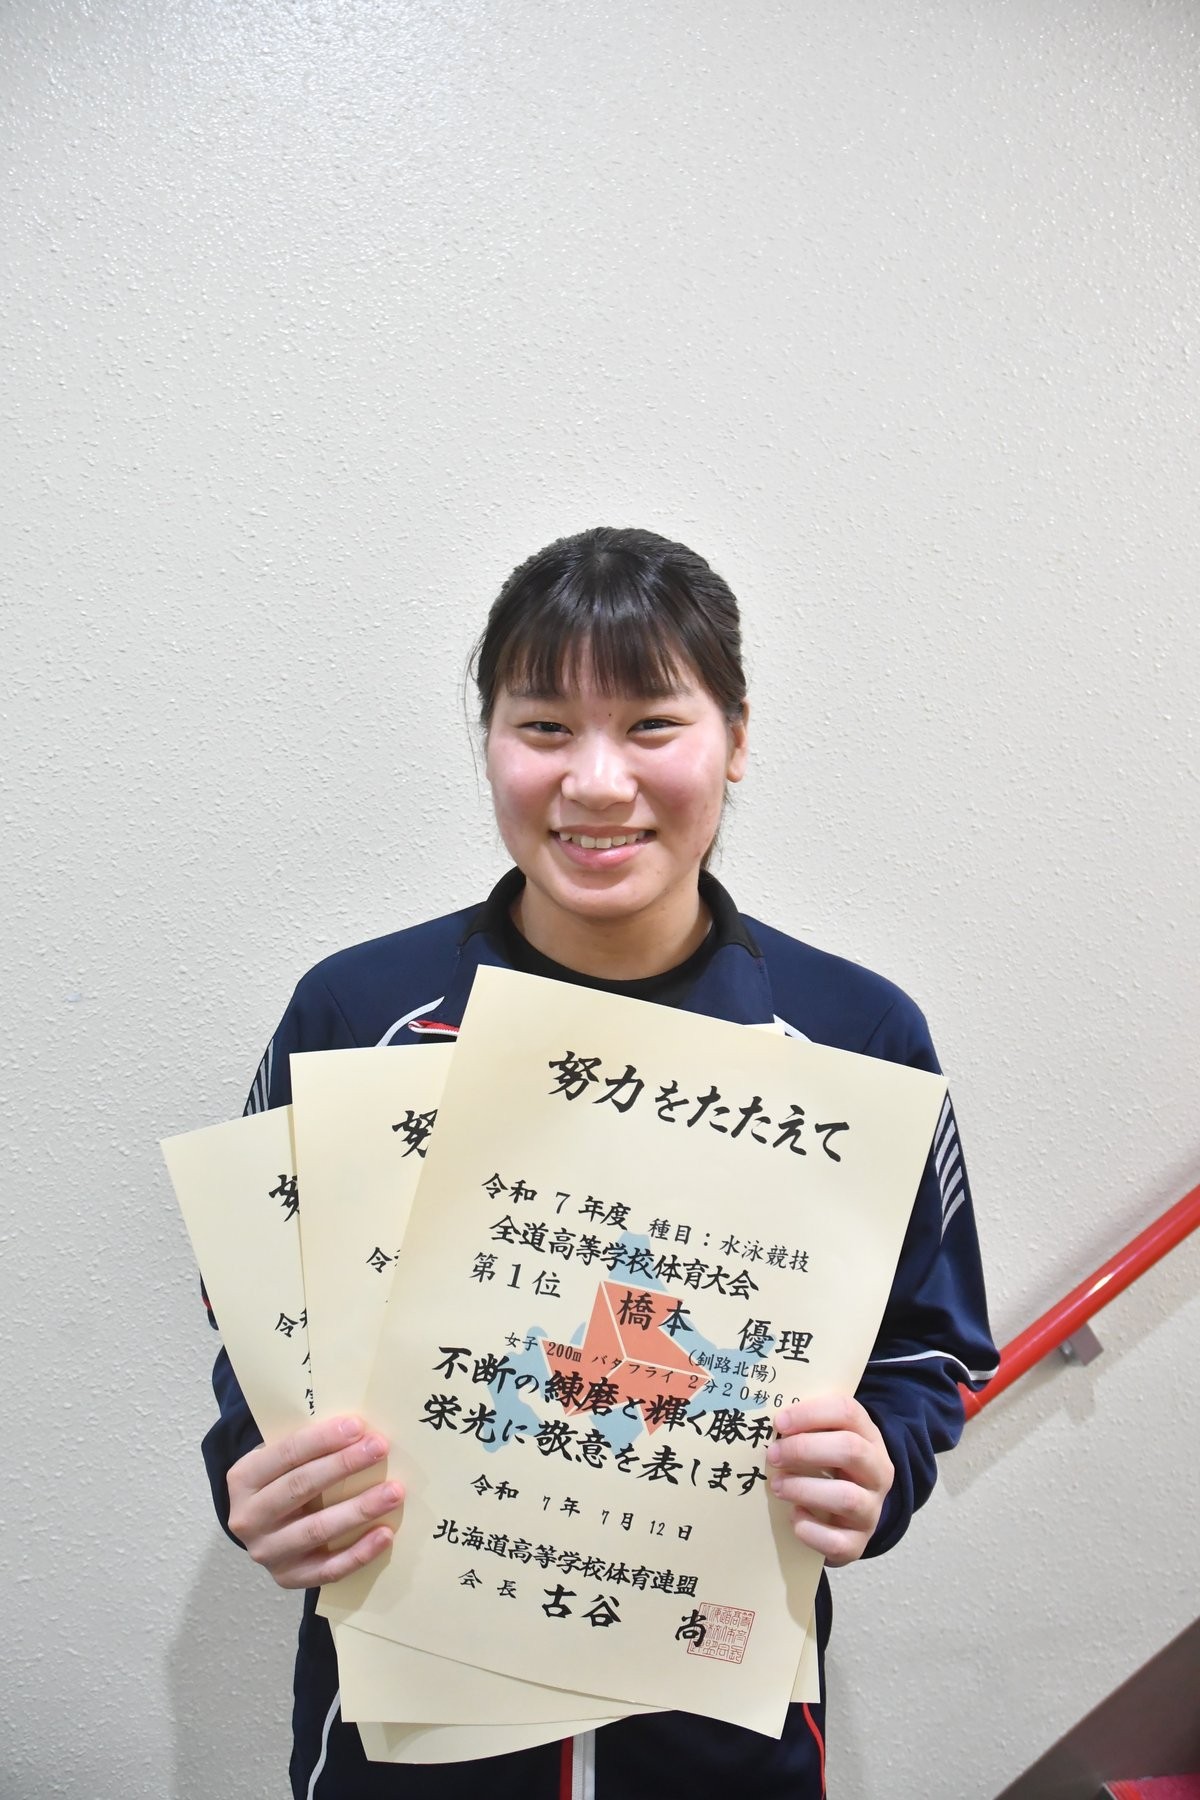 努力をたたえて
令和 7 年度 種目：水泳競技
全道高等学校体育大会
第1位 橋本 優理
(釧路北陽)
女子 200m バタフライ 2分20秒6
不断の練磨と輝く勝利
栄光に敬意を表します
令和 7年 7月 12日
北海道高等学校体育連盟
会長 古谷 尚
努
令
努
令